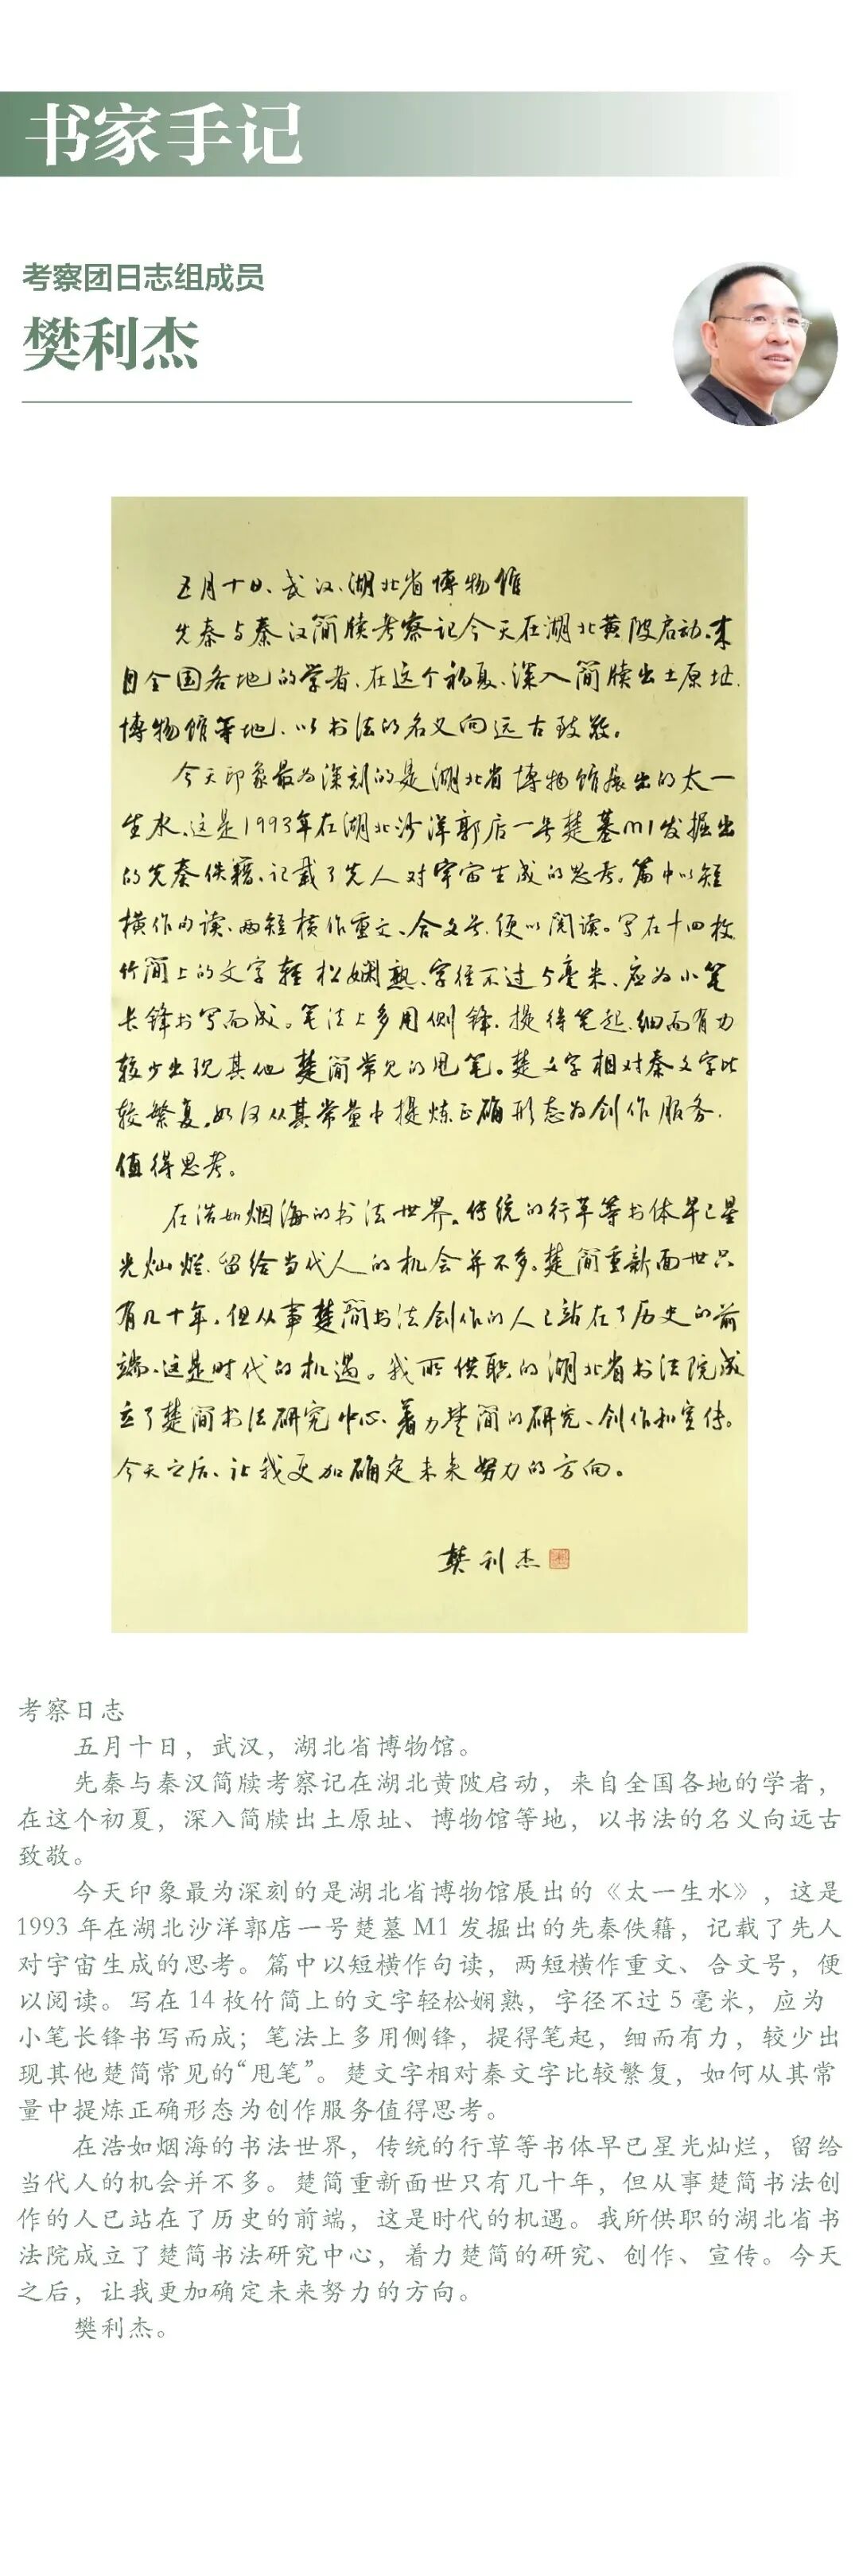 书家手记
考察团日志组成员
樊利杰
五月十日、武汉、湖北省博物馆
先秦与秦汉简牍考察记今天在湖北黄陂启动、来
自全国各地的学者、在这个初夏、深入简牍出土原址、
博物馆等地、以书法的名义向远古致敬。
今天印象最为深刻的是湖北省博物馆展出的太一
生水、这是1993年在湖北沙洋郭店一号楚墓m1发掘出
的先秦佚籍、记载了先人对宇宙生成的思考。篇中以短
横作句读、两短横作重文、合文号、便以阅读。写在十四枚
竹简上的文字轻松娴熟、字径不过5毫米、应为小笔
长锋书写而成。笔法上多用侧锋、提得笔起、细而有力
较少出现其他楚简常见的甩笔。楚文字相对秦文字比
较繁复。如何从其常量中提炼正确形态为创作服务、
值得思考。
在浩如烟海的书法世界。传统的行草等书体早已星
光灿烂、留给当代人的机会并不多。楚简重新面世只
有几十年、但从事楚简书法创作的人已站在了历史的前
端、这是时代的机遇。我所供职的湖北省书法院成
立了楚简书法研究中心、着力楚简的研究、创作和宣传。
今天之后、让我更加确定未来努力的方向。
樊利杰
考察日志
五月十日，武汉，湖北省博物馆。
先秦与秦汉简牍考察记在湖北黄陂启动，来自全国各地的学者，
在这个初夏，深入简牍出土原址、博物馆等地，以书法的名义向远古
致敬。
今天印象最为深刻的是湖北省博物馆展出的《太一生水》，这是
1993 年在湖北沙洋郭店一号楚墓 M1 发掘出的先秦佚籍，记载了先人
对宇宙生成的思考。篇中以短横作句读，两短横作重文、合文号，便
以阅读。写在 14 枚竹简上的文字轻松娴熟，字径不过 5 毫米，应为
小笔长锋书写而成；笔法上多用侧锋，提得笔起，细而有力，较少出
现其他楚简常见的“甩笔”。楚文字相对秦文字比较繁复，如何从其常
量中提炼正确形态为创作服务值得思考。
在浩如烟海的书法世界，传统的行草等书体早已星光灿烂，留给
当代人的机会并不多。楚简重新面世只有几十年，但从事楚简书法创
作的人已站在了历史的前端，这是时代的机遇。我所供职的湖北省书
法院成立了楚简书法研究中心，着力楚简的研究、创作、宣传。今天
之后，让我更加确定未来努力的方向。
樊利杰。